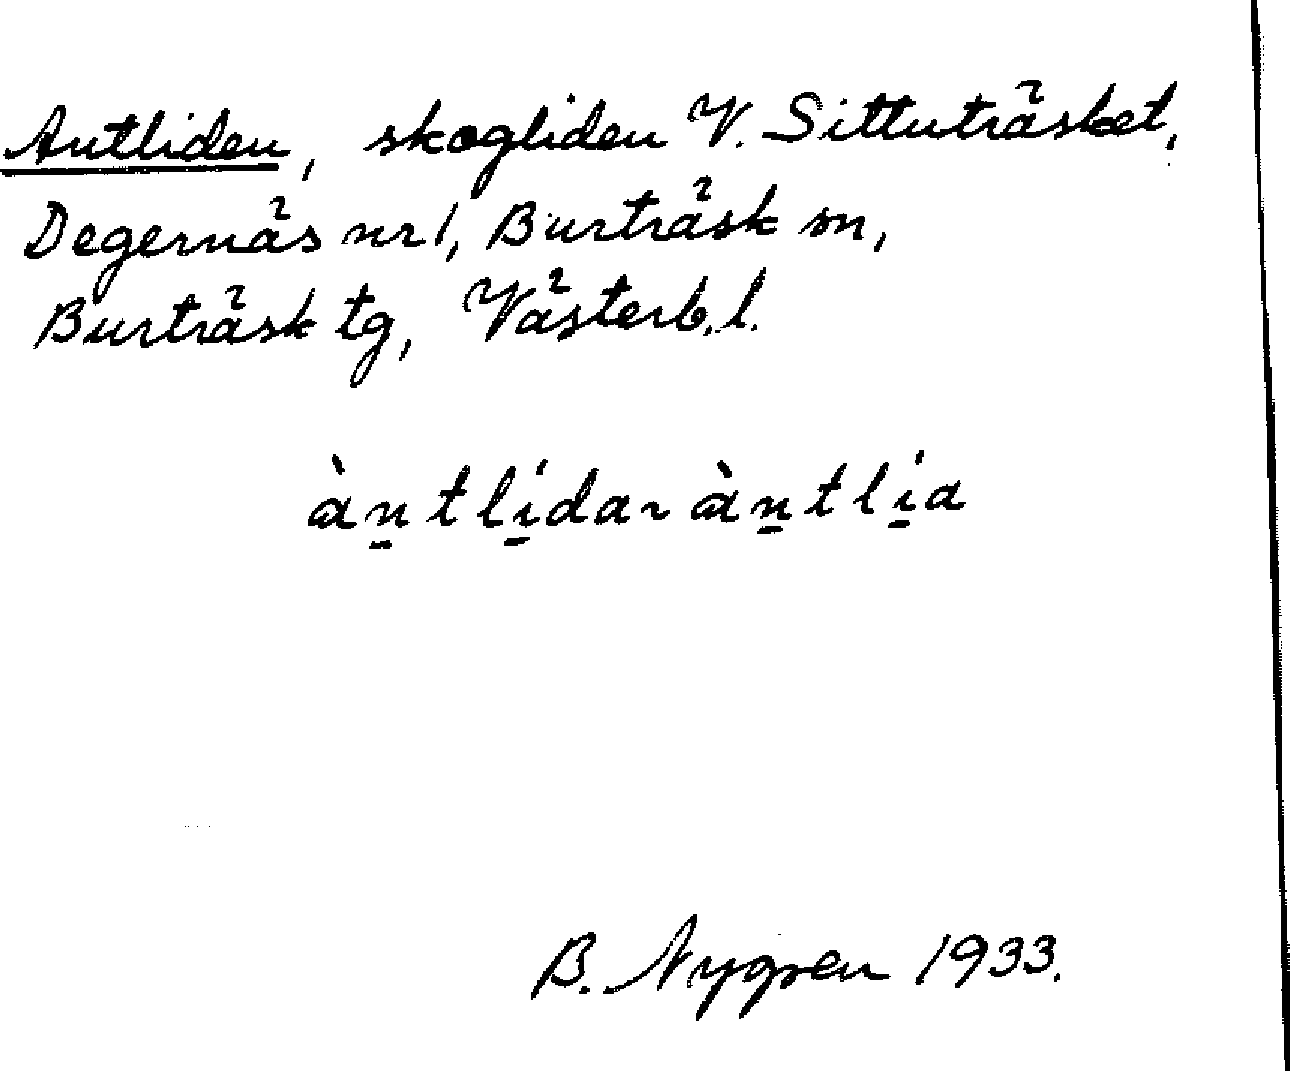 Antliden, skogliden V. Sittuträsket,
Degernäs nr 1, Burträsk sn,
Burträsk tg, Västerb. l.
àn̠tlí̠da ~ àn̠tlí̠a
B. Nygren 1933.